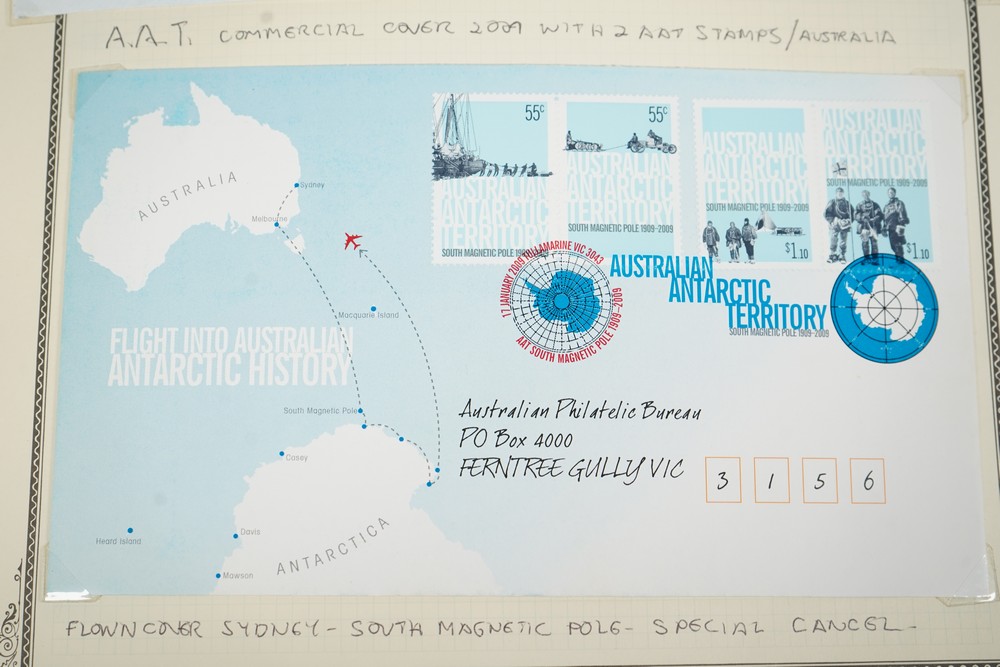 A.A.T. COMMERCIAL COVER 2009 WITH 2 AAT STAMPS/AUSTRALIA
55c
55c
AUSTRALIAN
ANTARCTIC
TERRITORY
SOUTH MAGNETIC POLE 1909-2009
AUSTRALIAN
ANTARCTIC
TERRITORY
SOUTH MAGNETIC POLE 1909-2009
AUSTRALIAN
ANTARCTIC
TERRITORY
SOUTH MAGNETIC POLE 1909-2009
$1.10
AUSTRALIAN
ANTARCTIC
TERRITORY
SOUTH MAGNETIC POLE 1909-2009
$1.10
AUSTRALIA
Sydney
Melbourne
Macquarie Island
FLIGHT INTO AUSTRALIAN
ANTARCTIC HISTORY
17 JANUARY 2009 TULLAMARINE VIC 3043
AAT SOUTH MAGNETIC POLE 1909-2009
AUSTRALIAN
ANTARCTIC
TERRITORY
SOUTH MAGNETIC POLE 1909-2009
South Magnetic Pole
Casey
Davis
Heard Island
Mawson
ANTARCTICA
Australian Philatelic Bureau
PO Box 4000
FERNTREE GULLY VIC
3 1 5 6
FLOWN COVER SYDNEY - SOUTH MAGNETIC POLE - SPECIAL CANCEL -